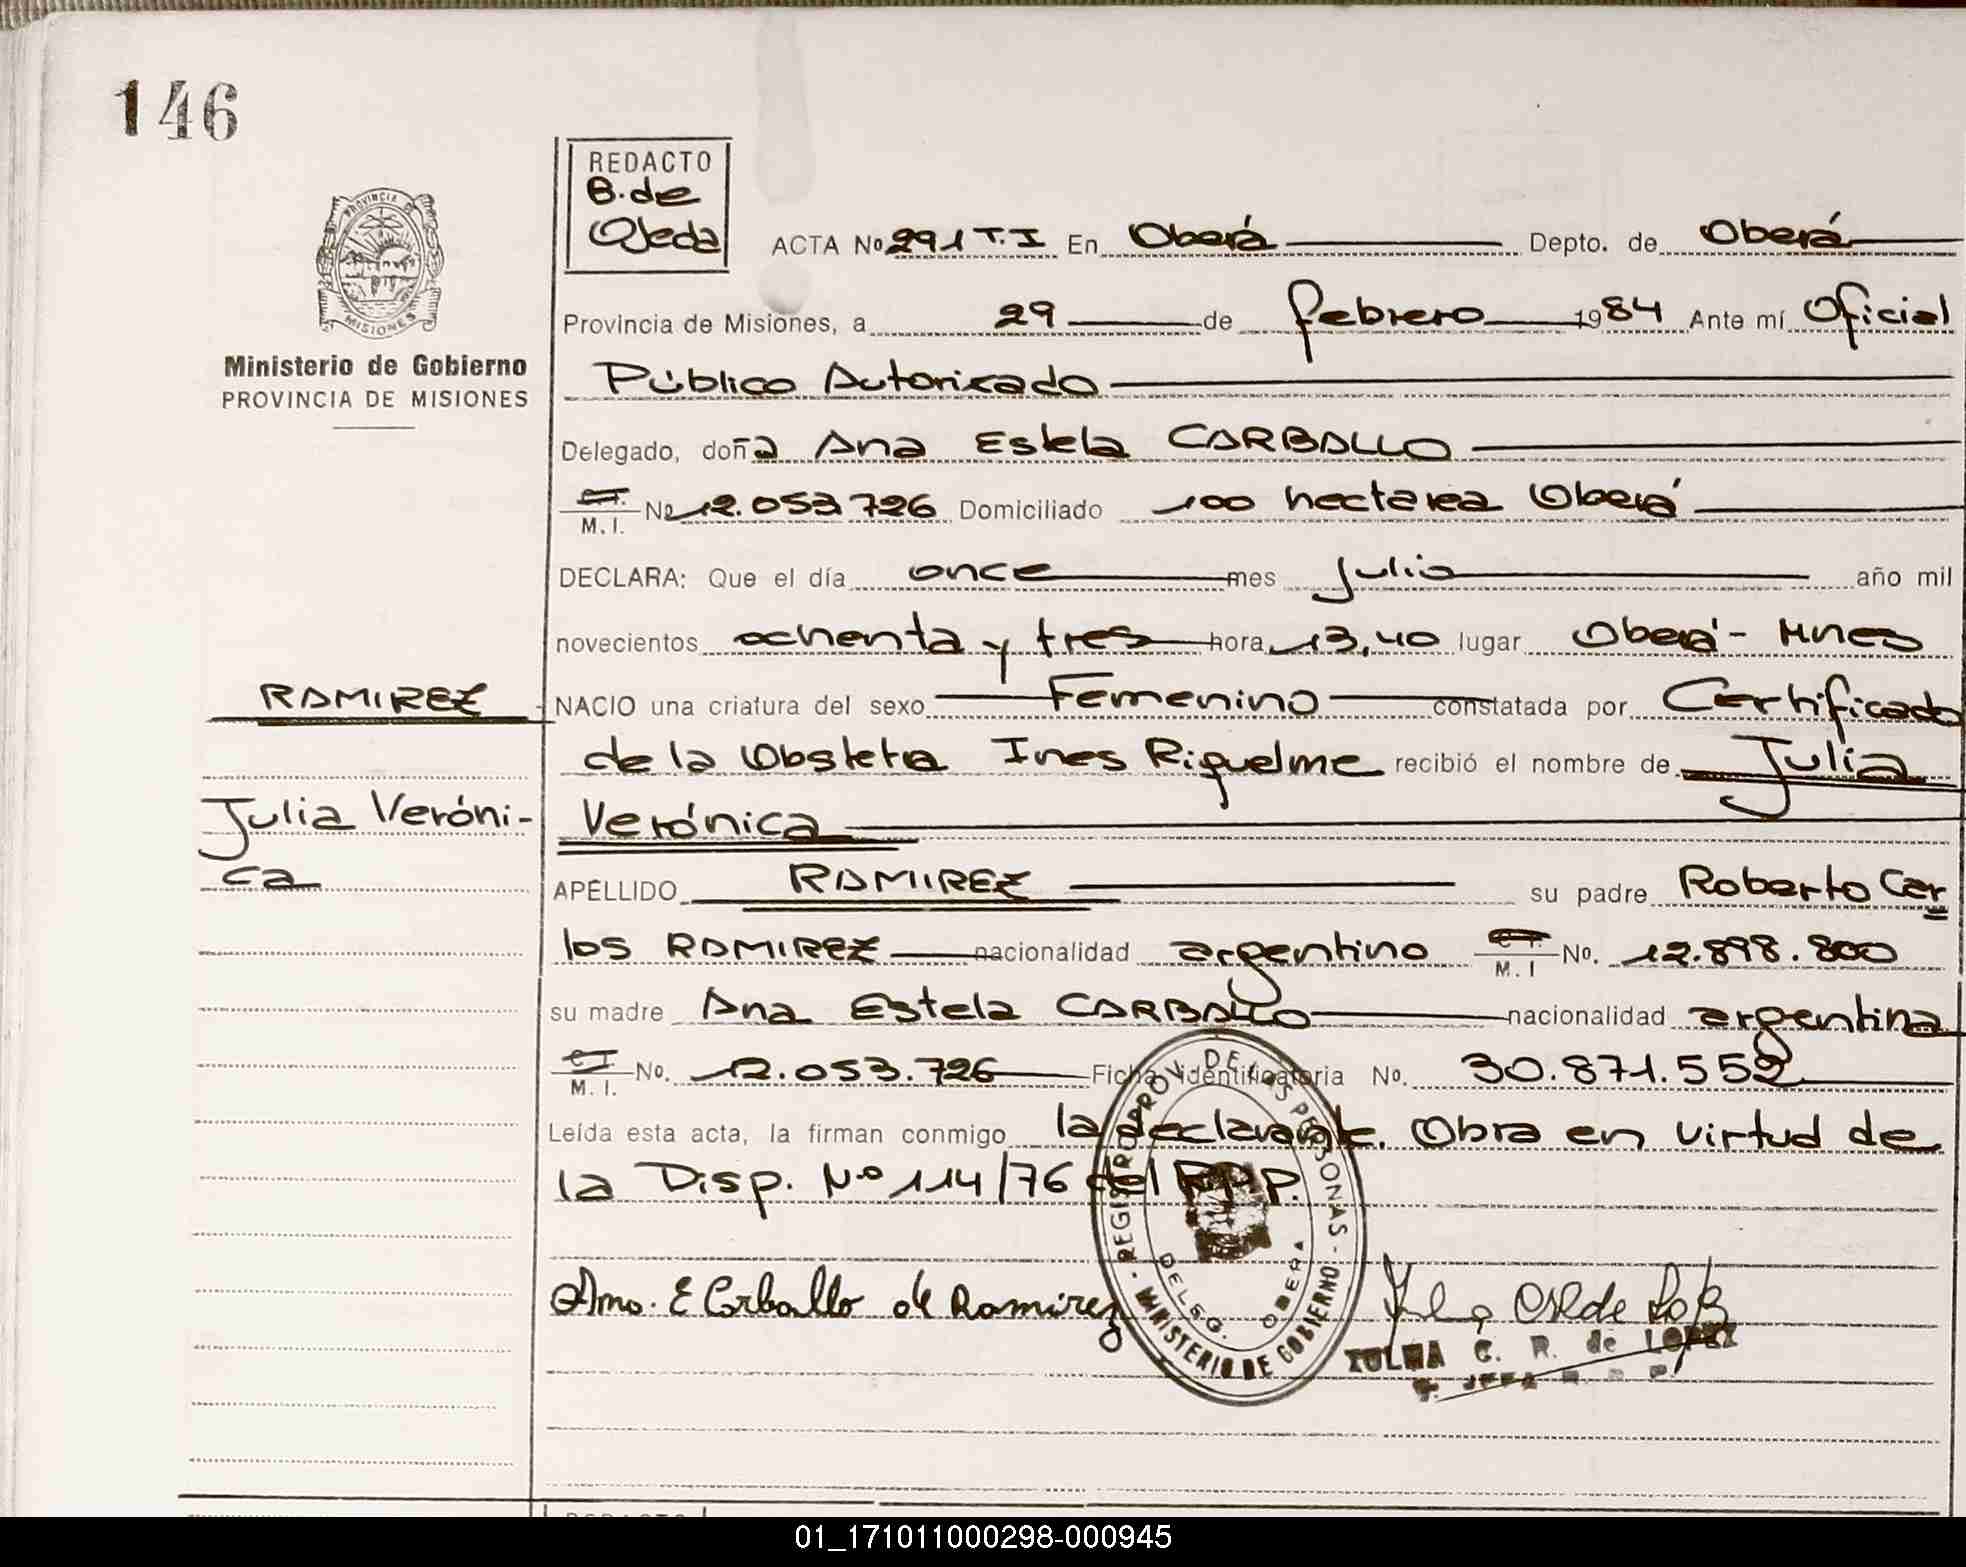 146
REDACTO
B. de
Ojeda
PROVINCIA DE
MISIONES
Ministerio de Gobierno
PROVINCIA DE MISIONES
ACTA No 291 T.I En Oberá Depto. de Oberá
Provincia de Misiones, a 29 de febrero 1984 Ante mí Oficial
Público Autorizado
Delegado, doña Ana Estela CARBALLO
C.I. M.I. No 12.053.726 Domiciliado 100 hectarea Oberá
DECLARA: Que el día once mes Julio año mil
novecientos ochenta y tres hora 13,40 lugar Oberá - Mnes
RAMIREZ
NACIO una criatura del sexo Femenino constatada por Certificado
de la Obsteta Ines Riquelme recibió el nombre de Julia
Julia Veróni-
ca
Verónica
APELLIDO RAMIREZ su padre Roberto Car
los RAMIREZ nacionalidad argentino C.I. M.I No. 12.898.800
su madre Ana Estela CARBALLO nacionalidad argentina
C.I. M.I. No. 12.053.726 Ficha identificatoria No. 30.871.552
Leída esta acta, la firman conmigo la declarante. Obra en virtud de
la Disp. Nº 114/76 del R.P.P.
REGISTRO PROV. DE LAS PERSONAS - MINISTERIO DE GOBIERNO -
DELEG. OBERA
Ana. E Carballo de Ramírez
C. R. de LOPEZ
01_171011000298-000945